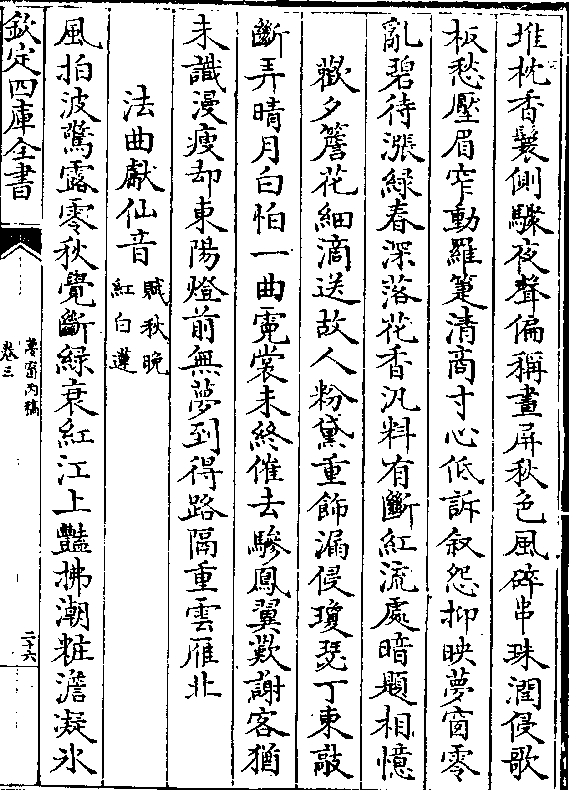 堆枕香鬟側驟夜聲偏稱畫屏秋色風碎串珠潤侵歌
板愁壓眉窄動羅箑清商寸心低訴叙怨抑映夢窗零
亂碧待漲綠春深落花香汎料有斷紅流處暗題相憶
歡夕簷花細滴送故人粉黛重飾漏侵瓊瑟丁東敲
斷弄晴月白怕一曲霓裳未終催去驂鳳翼歎謝客猶
未識漫瘦却東陽燈前無夢到得路隔重雲雁北
法曲獻仙音
賦秋晚
紅白蓮
風拍波驚露零秋覺斷綠衰紅江上豔拂潮粧澹凝氷
欽定四庫全書
夢窗丙稿
卷三
二十六